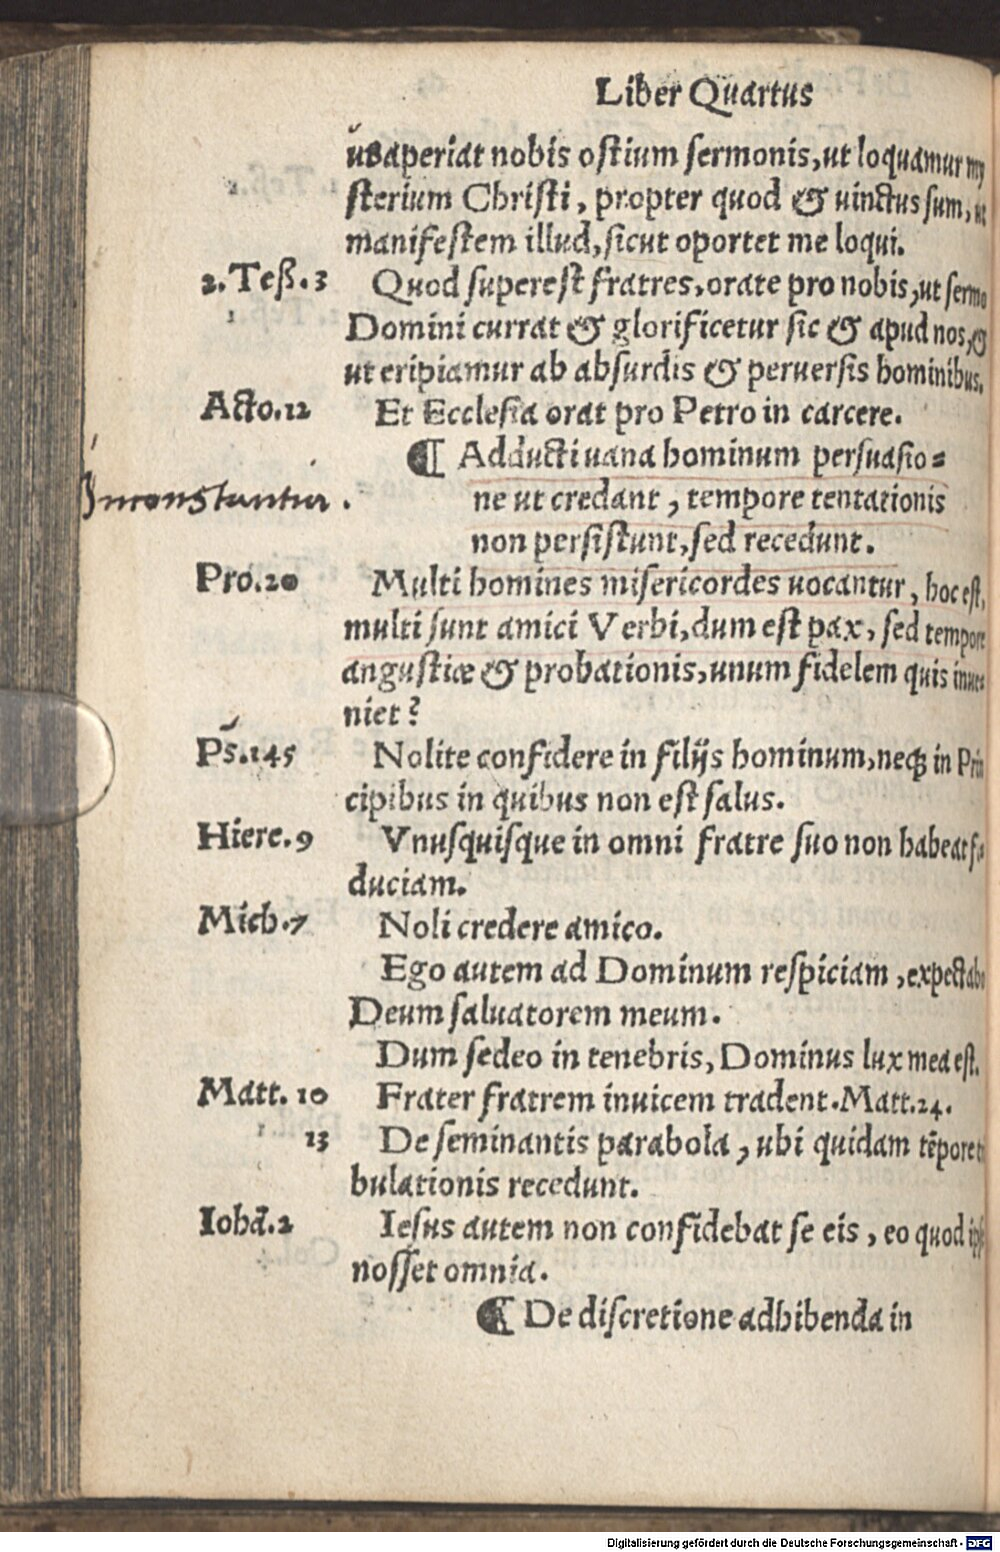 Liber Quartus
aperiat nobis ostium sermonis, ut loquamur my
sterium Christi, propter quod & uinctus sum, ut
manifestem illud, sicut oportet me loqui.
2. Teß. 3 Quod superest fratres, orate pro nobis, ut sermo
Domini currat & glorificetur sic & apud nos, &
ut eripiamur ab absurdis & peruersis hominibus.
Acto. 12 Et Ecclesia orat pro Petro in carcere.
¶ Adducti uana hominum persuasio=
Inconstantia. ne ut credant, tempore tentationis
non persistunt, sed recedunt.
Pro. 20 Multi homines misericordes uocantur, hoc est,
multi sunt amici Verbi, dum est pax, sed tempore
angustiæ & probationis, unum fidelem quis inue
niet?
Ps. 145 Nolite confidere in filijs hominum, neq; in Prin
cipibus in quibus non est salus.
Hiere. 9 Vnusquisque in omni fratre suo non habeat fi
duciam.
Mich. 7 Noli credere amico.
Ego autem ad Dominum respiciam, expectabo
Deum saluatorem meum.
Dum sedeo in tenebris, Dominus lux mea est.
Matt. 10 Frater fratrem inuicem tradent. Matt. 24.
13 De seminantis parabola, ubi quidam tēpore tri
bulationis recedunt.
Iohā. 2 Iesus autem non confidebat se eis, eo quod ipse
nosset omnia.
¶ De discretione adhibenda in
Digitalisierung gefördert durch die Deutsche Forschungsgemeinschaft - DFG